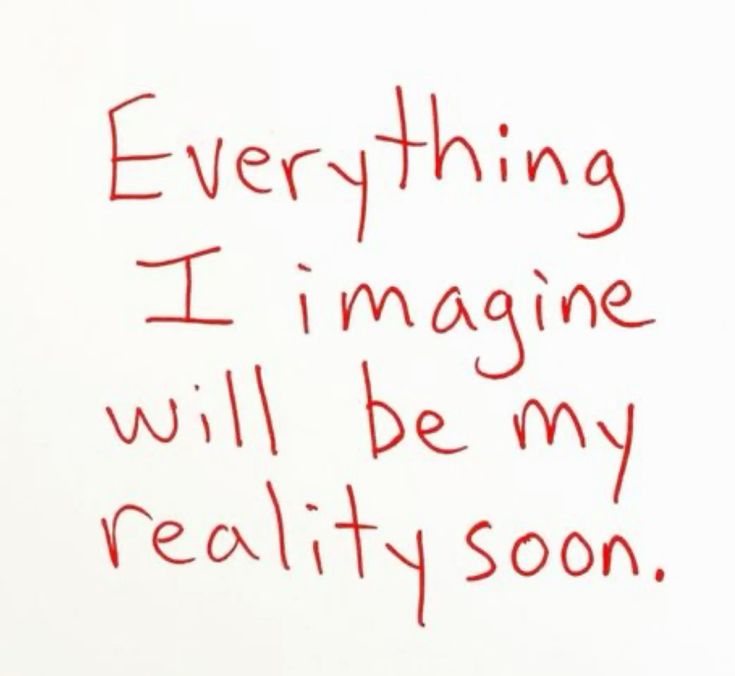 Everything
I imagine
will be my
reality soon.